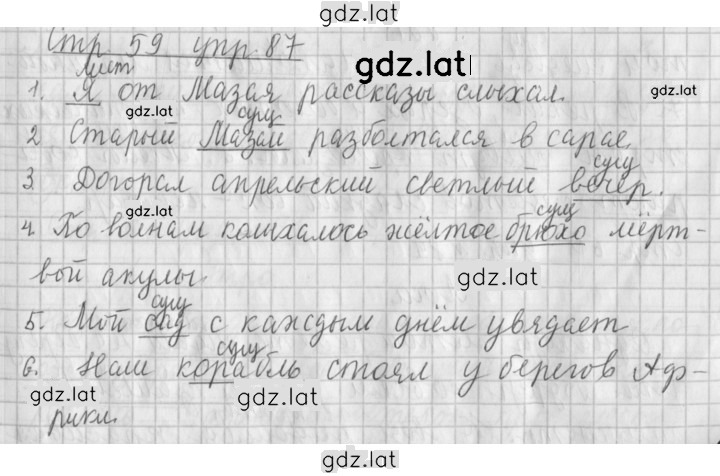 gdz.lat
Стр. 59 упр. 87
gdz.lat
мест
1. Я от Мазая рассказы слыхал.
gdz.lat
gdz.lat
сущ
2 Старый Мазай разболтался в сарае.
сущ
3. Догорал апрельский светлый вечер.
gdz.lat
сущ
4. По волнам колыхалось жёлтое брюхо мёрт-
вой акулы
gdz.lat
сущ
5. Мой сад с каждым днём увядает
сущ
6. Наш корабль стоял у берегов Аф-
gdz.lat
gdz.lat
рики.
gdz.lat